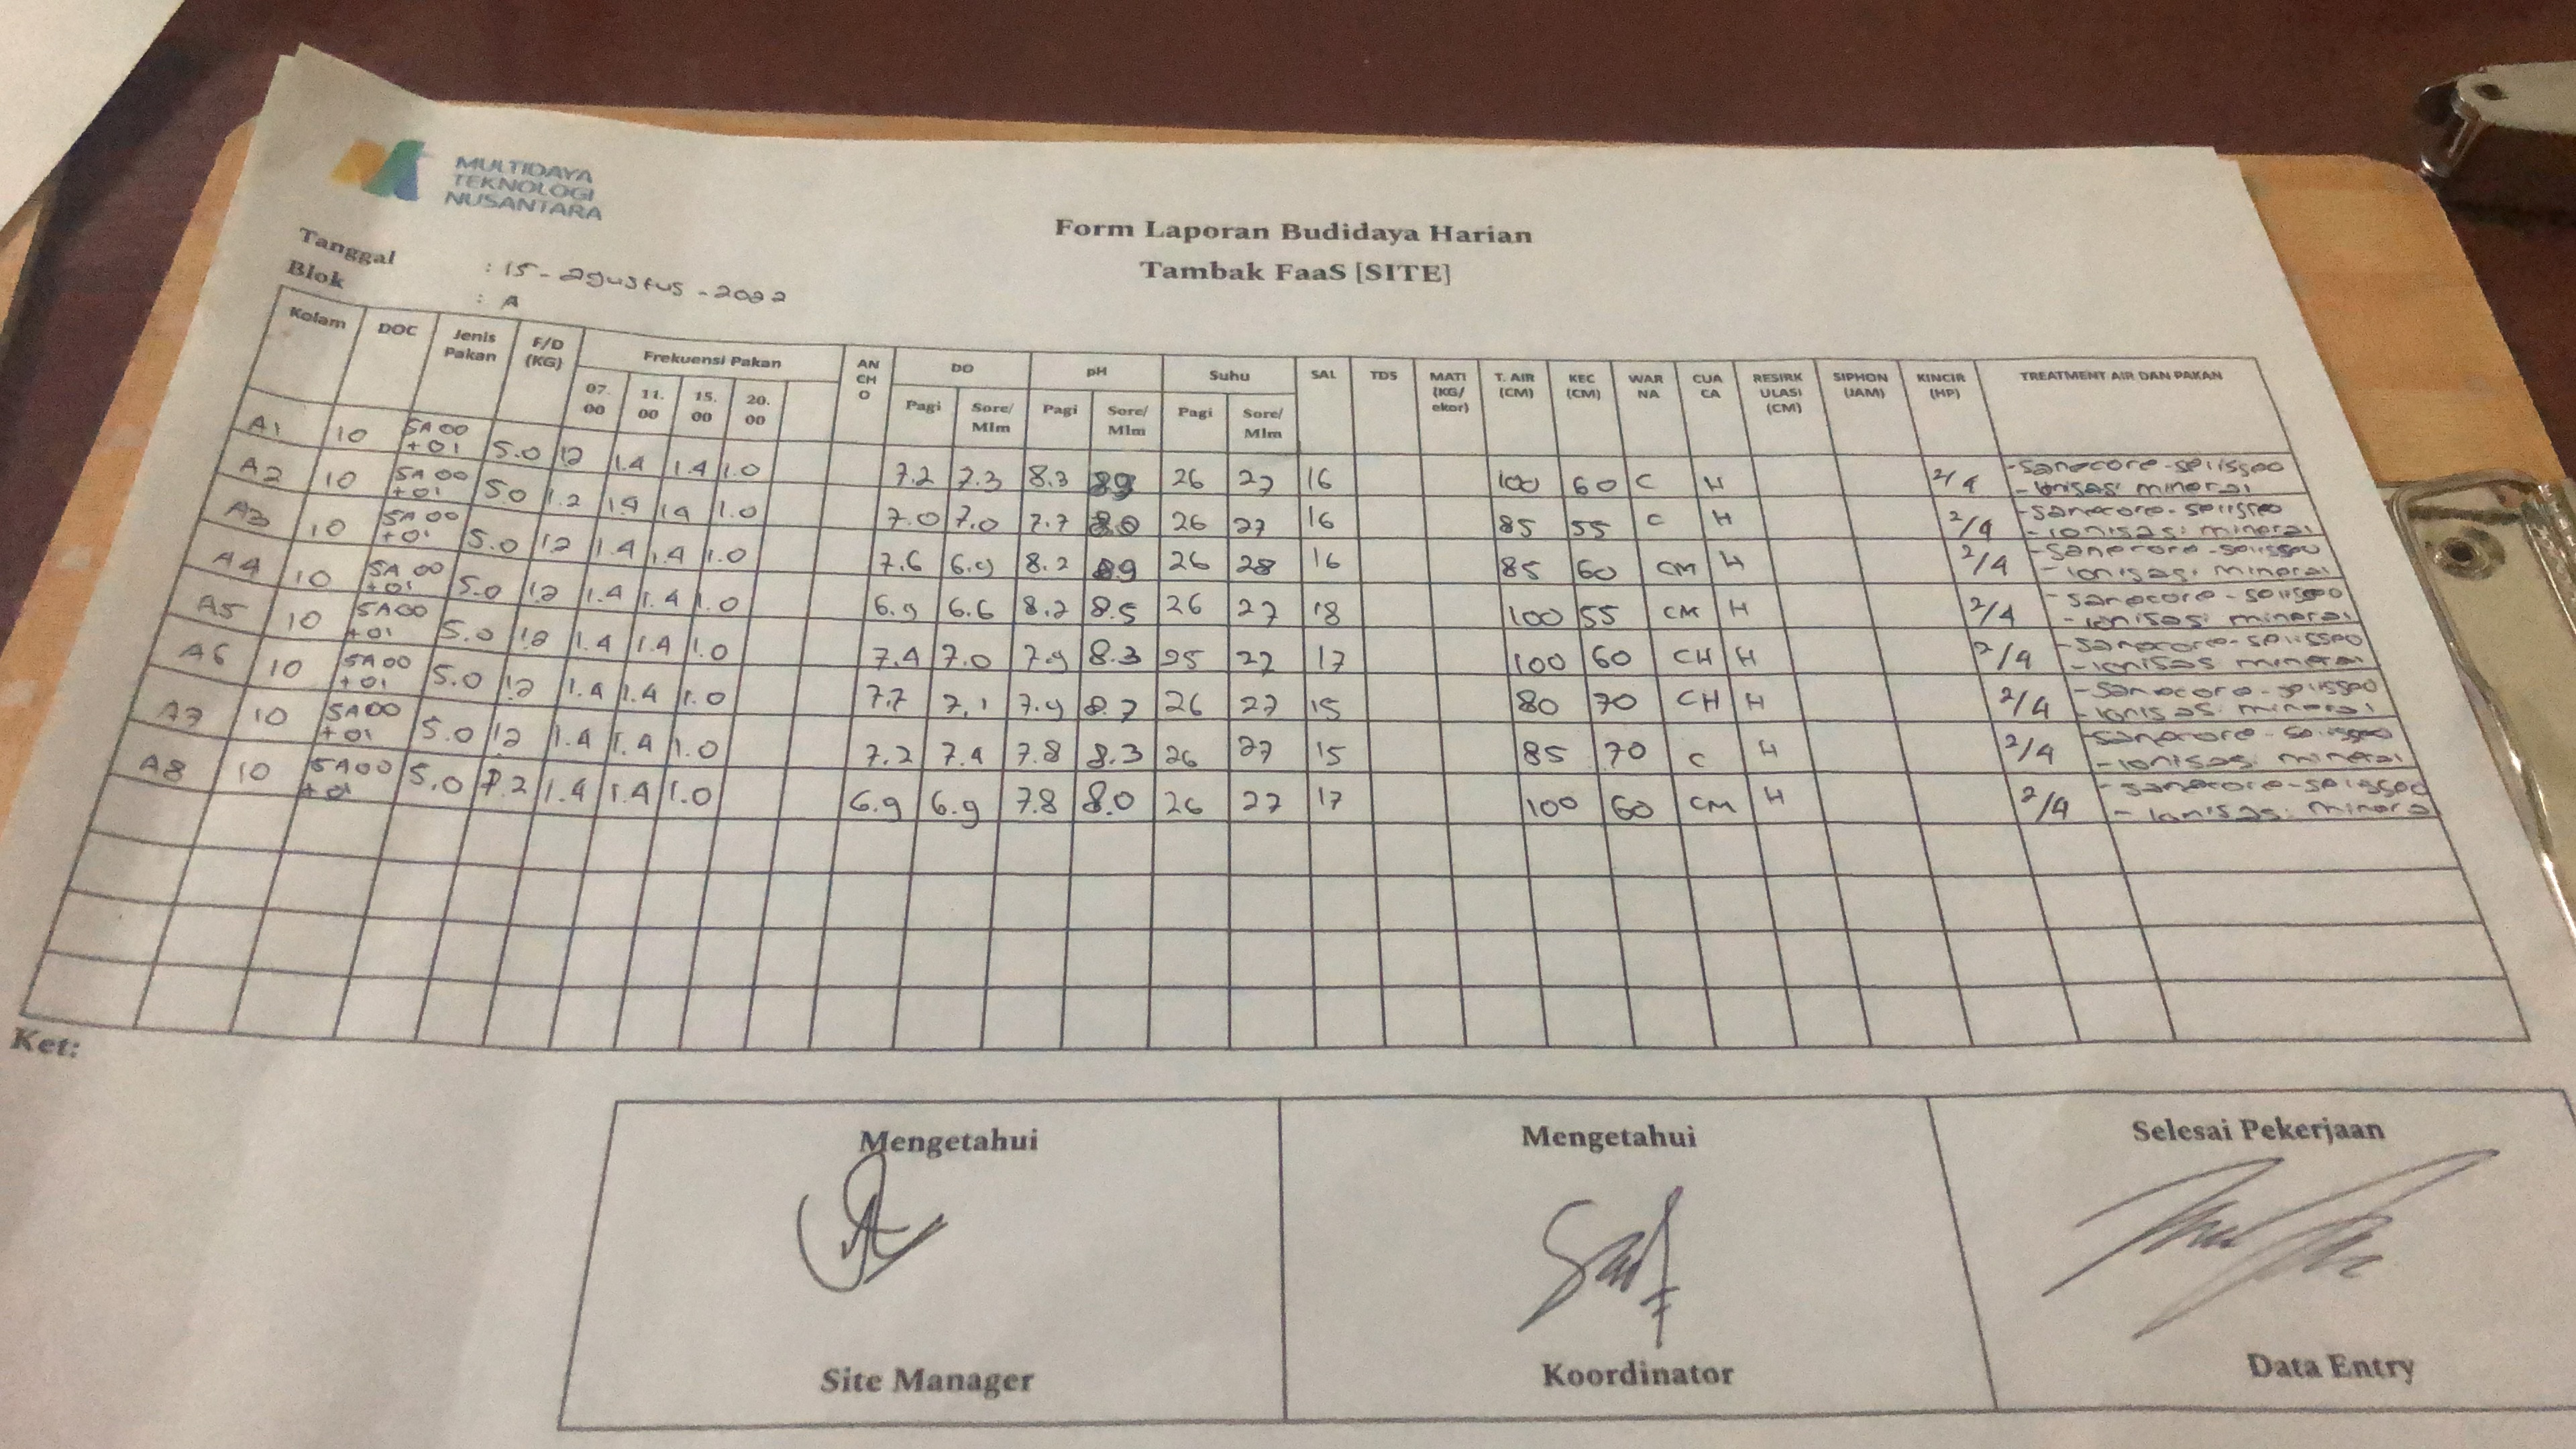 MULTIDAYA
TEKNOLOGI
NUSANTARA
Form Laporan Budidaya Harian
Tambak FaaS [SITE]
Tanggal : 15 - agustus - 2022
Blok : A
Kolam DOC Jenis Pakan F/D (KG) Frekuensi Pakan 07.00 11.00 15.00 20.00 ANCHO DO Pagi Sore/Mlm pH Pagi Sore/Mlm Suhu Pagi Sore/Mlm SAL TDS MATI (KG/ekor) T. AIR (CM) KEC (CM) WARNA CUACA RESIRKULASI (CM) SIPHON (JAM) KINCIR (HP) TREATMENT AIR DAN PAKAN
A1 10 SA 00 +01 5.0 1.2 1.4 1.4 1.0 7.2 7.3 8.3 8.9 26 27 16 100 60 C H 2/4 -sanocore-spiisso
-ionisasi mineral
A2 10 SA 00 +01 5.0 1.2 1.4 1.4 1.0 7.0 7.0 7.7 26 27 16 85 55 C H 2/4 -sanocore-spiisso
-ionisasi mineral
A3 10 SA 00 +01 5.0 1.2 1.4 1.4 1.0 7.6 6.9 8.2 26 28 16 85 60 CM H 2/4 -sanocore-spiisso
-ionisasi mineral
A4 10 SA 00 +01 5.0 1.2 1.4 1.4 1.0 6.9 6.6 8.2 8.5 26 27 18 100 55 CM H 2/4 -sanocore-spiisso
-ionisasi mineral
A5 10 SA 00 +01 5.0 1.2 1.4 1.4 1.0 7.4 7.0 7.9 8.3 25 27 17 100 60 CH H 2/4 -sanocore-spiisso
-ionisasi mineral
A6 10 SA 00 +01 5.0 1.2 1.4 1.4 1.0 7.7 7.1 7.9 8.2 26 27 15 80 70 CH H 2/4 -sanocore-spiisso
-ionisasi mineral
A7 10 SA 00 +01 5.0 1.2 1.4 1.4 1.0 7.2 7.4 7.8 8.3 26 27 15 85 70 C H 2/4 -sanocore-spiisso
-ionisasi mineral
A8 10 SA 00 +01 5.0 1.2 1.4 1.4 1.0 6.9 6.9 7.8 8.0 26 27 17 100 60 CM H 2/4 -sanocore-spiisso
-ionisasi minera
Ket:
Mengetahui Mengetahui Selesai Pekerjaan
Site Manager Koordinator Data Entry